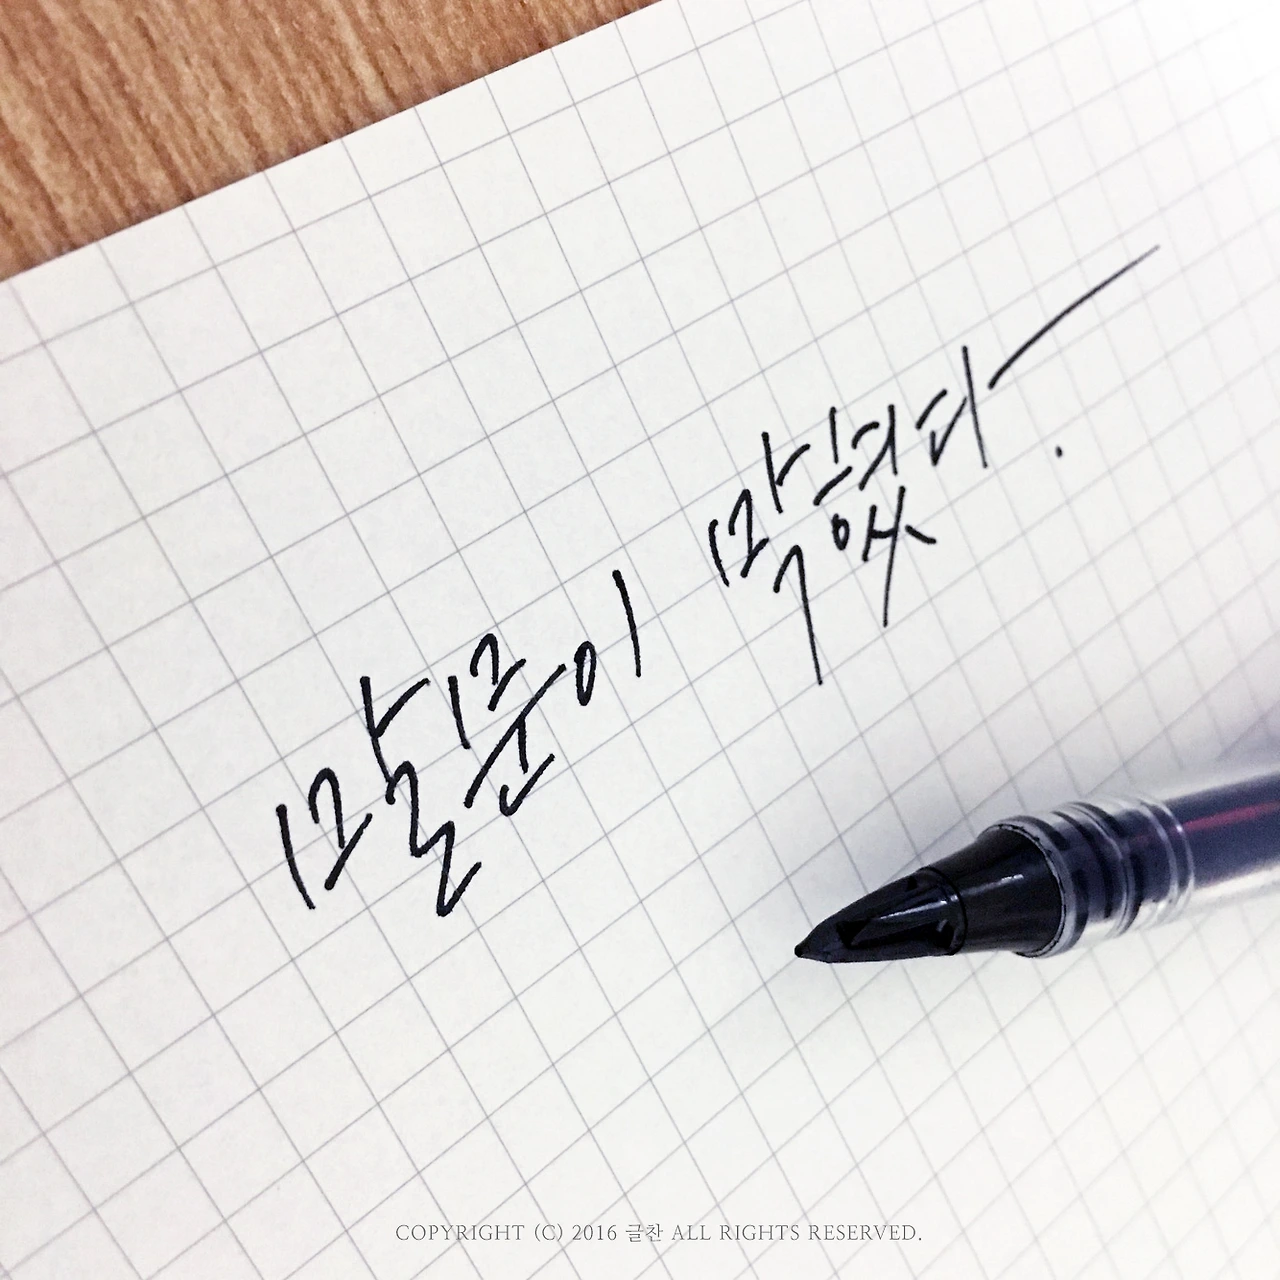 말문이 막혔다.
COPYRIGHT (C) 2016 글찬 ALL RIGHTS RESERVED.